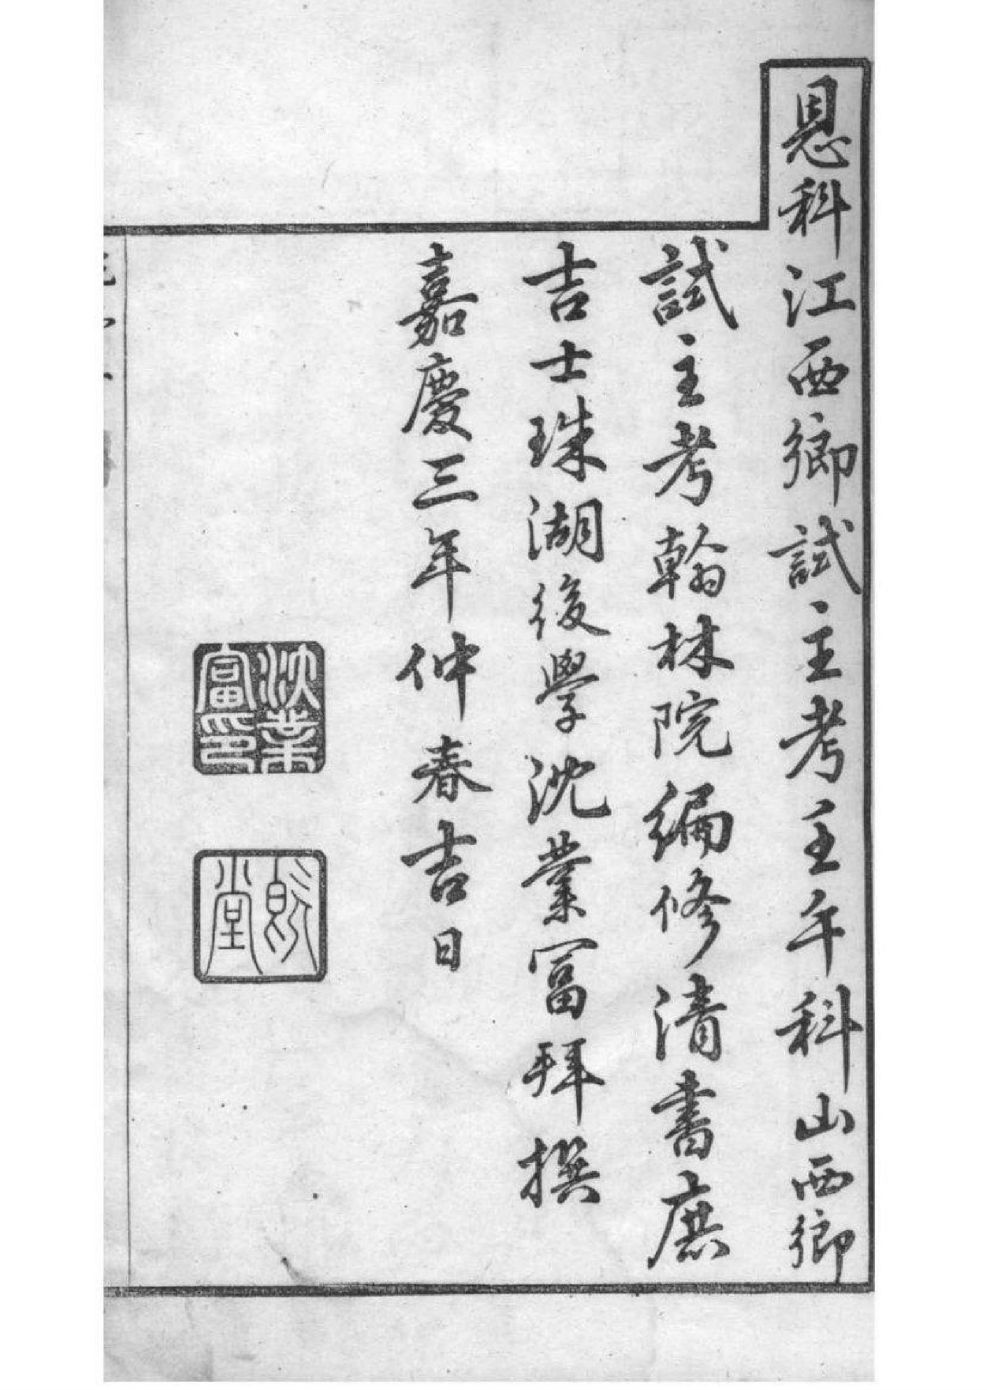 恩科江西鄉試主考壬午科山西鄉
試主考翰林院編修清書庶
吉士珠湖後學沈業富拜撰
嘉慶三年仲春吉日
沈業富印
既堂